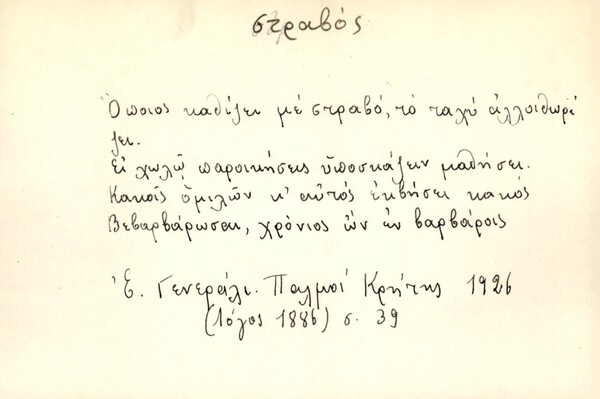 στραβός
Ὅποιος καθίζει μέ στραβό, τό ταχύ ἀλλοιθωρί
ζει.
Εἰ χωλῷ παροικήσεις ὑποσκάζειν μαθήσει.
Κακοῖς ὁμιλῶν κ' αὐτός ἐκβήσει κακός
Βεβαρβάρωσαι, χρόνιος ὤν ἐν βαρβάροις
Ἐ. Γενεράλι. Παλμοί Κρήτης 1926
(Λόγος 1886) σ. 39